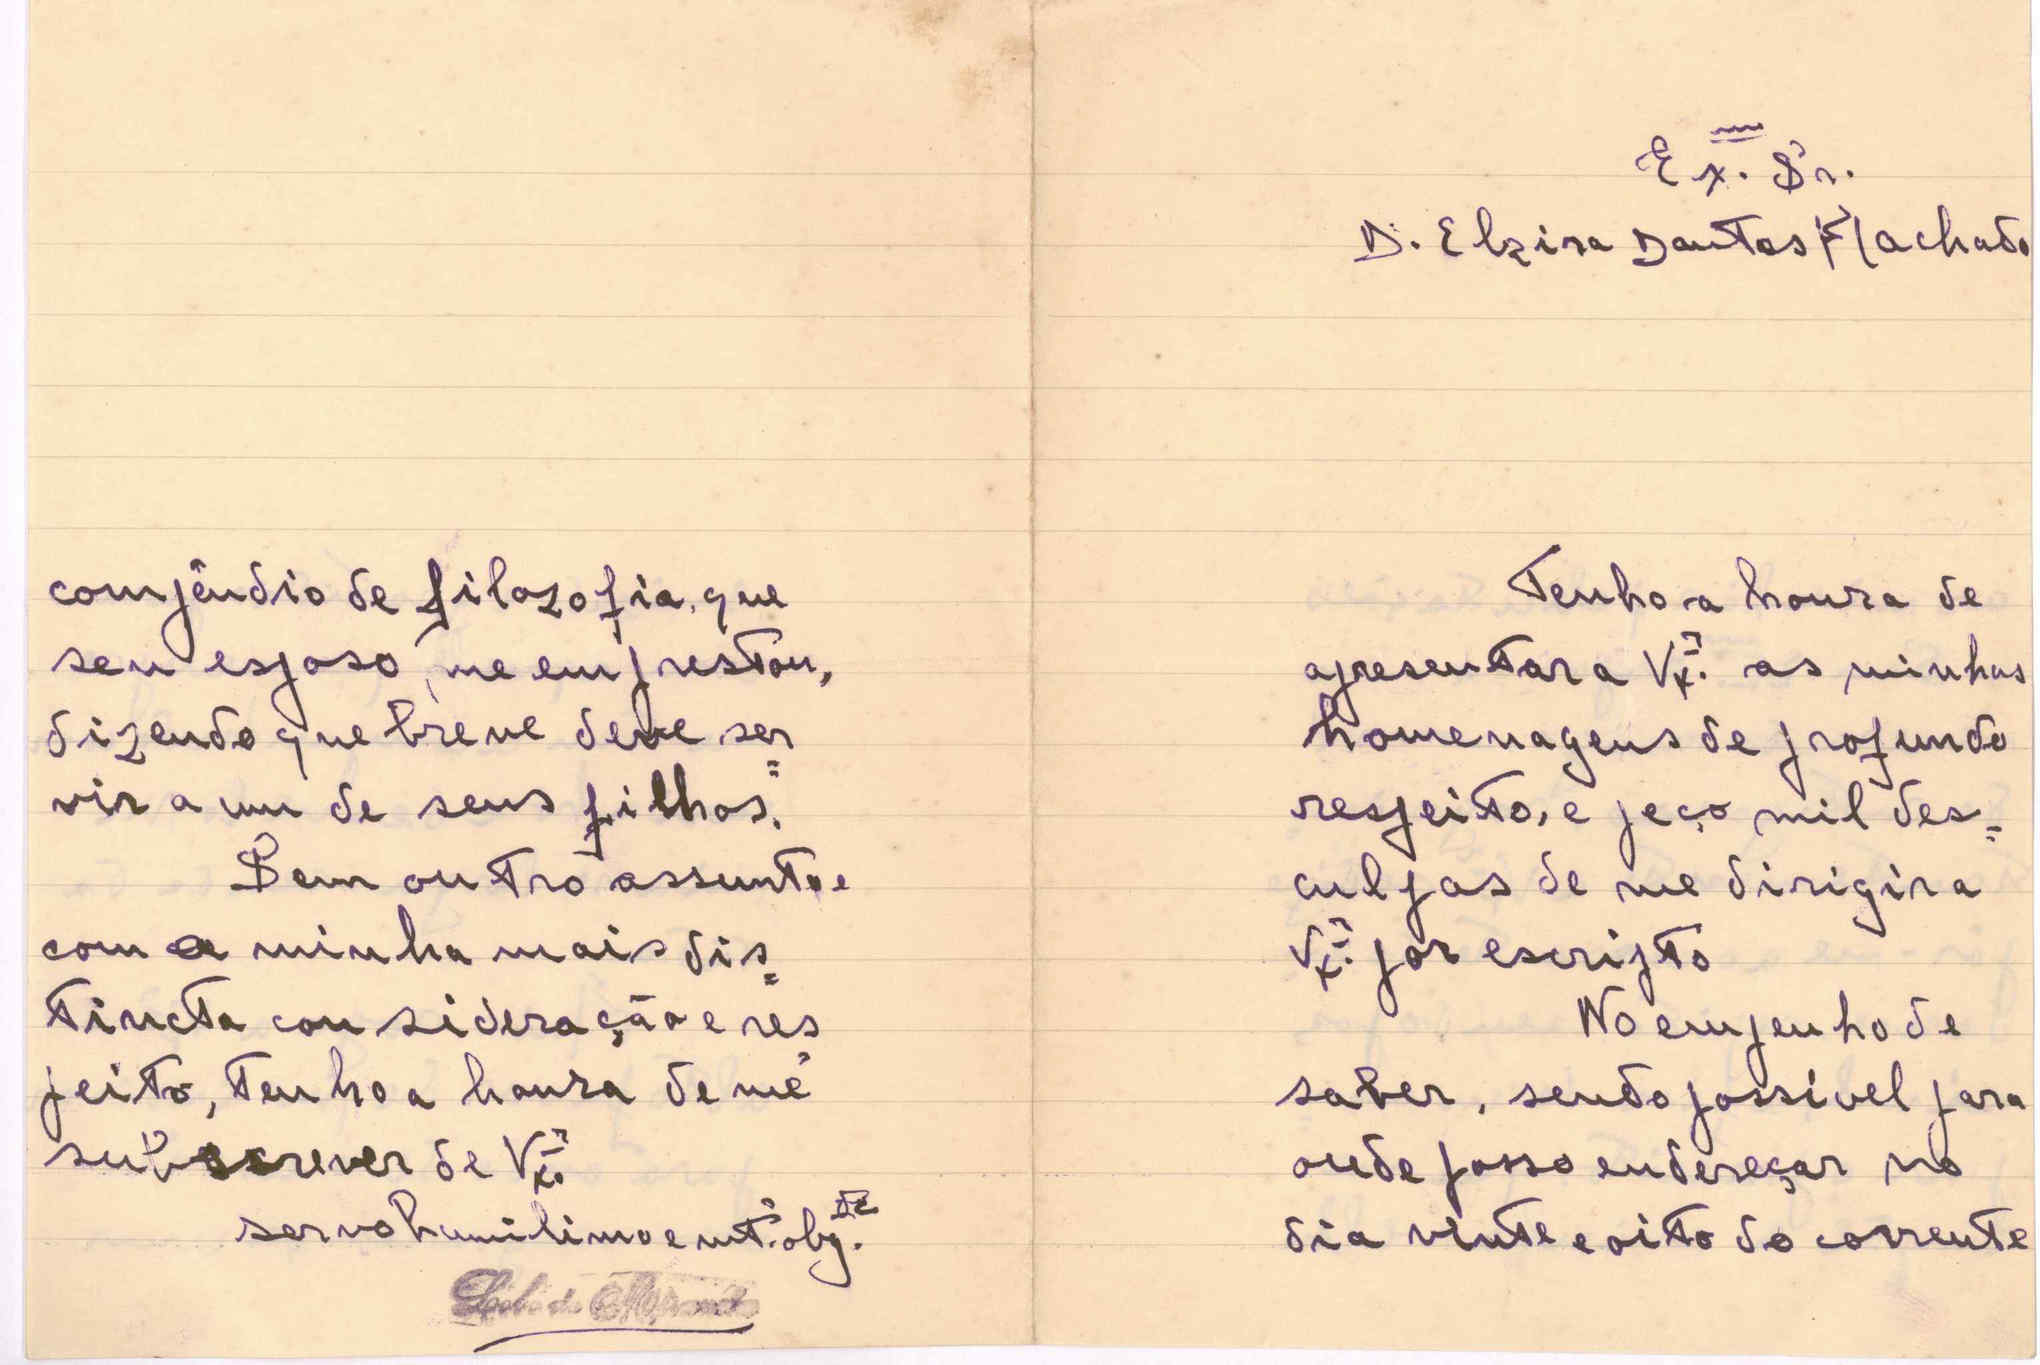 Ex.ma Sr.
D. Elzira Dantas Machado
Tenho a honra de
apresentar a Vx.ª as minhas
homenagens de profundo
respeito, e peço mil des=
culpas de me dirigir a
Vx.ª por escripto
No empenho de
saber, sendo possivel para
onde posso endereçar no
dia vinte e oito do corrente
compêndio de filozofia, que
seu esposo, me emprestou,
dizendo que breve deve ser=
vir a um de seus filhos.
Sem outro assunto e
com a minha mais dis=
tincta consideração e res
peito, tenho a honra de me
subscrever de Vx.ª
servo humilimo e mt.º obg.do